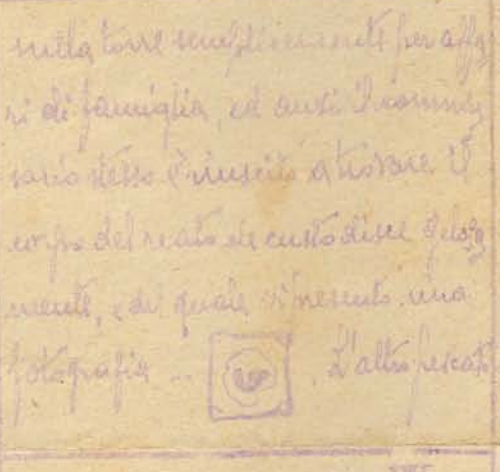 sulla torre semplicemente per affa
ri di famiglia, ed anzi il commis
sario stesso è riuscito a trovare il
corpo del reato che custodisce gelosa
mente, e del quale vi presento una
fotografia ... . L'altro pescato